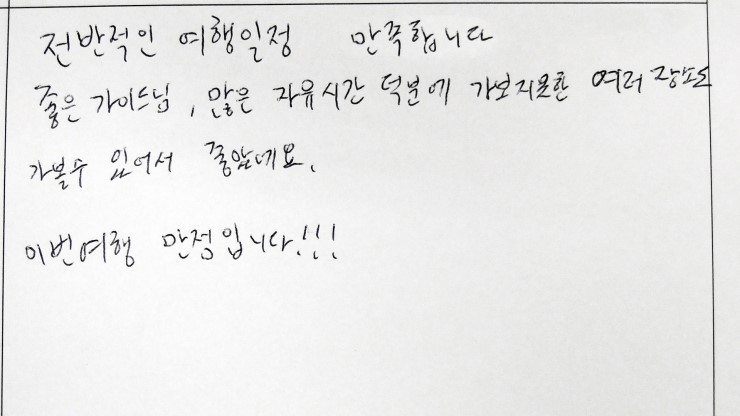 전반적인 여행일정 만족합니다
좋은 가이드님, 많은 자유시간 덕분에 가보지못한 여러 장소도
가볼수 있어서 좋았네요.
이번여행 만점입니다!!!